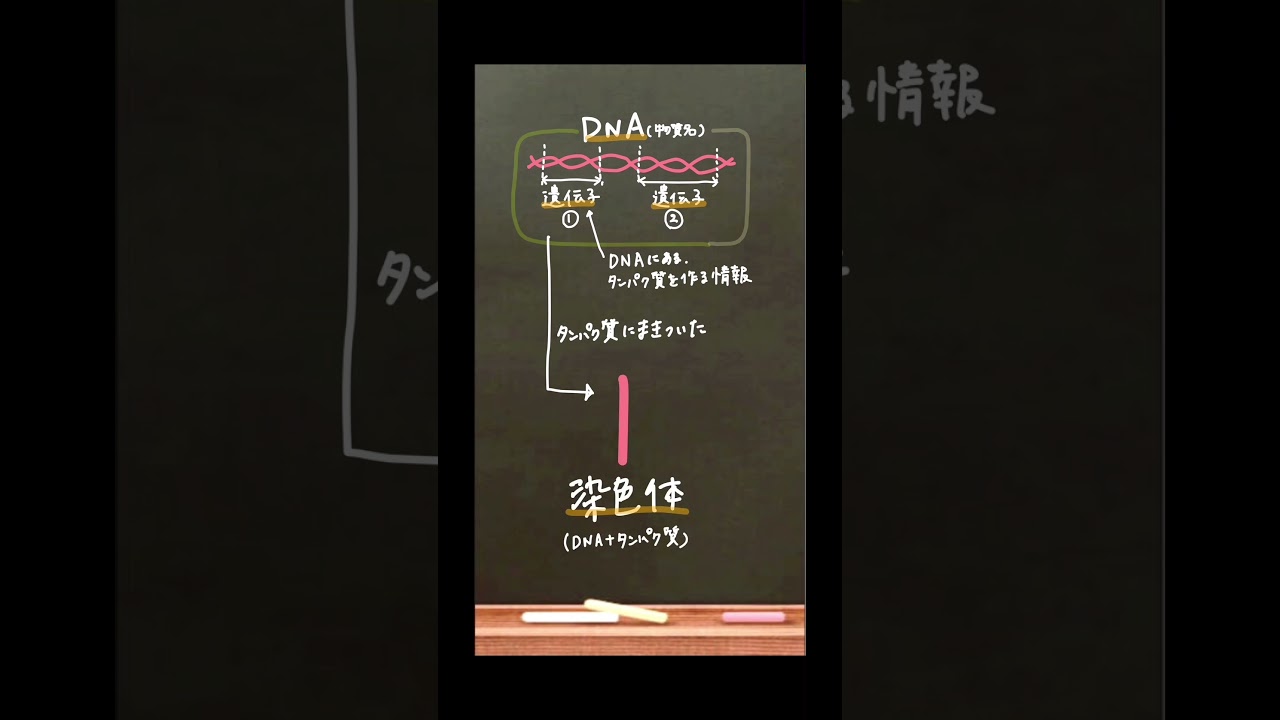 DNA(物質名)
遺伝子 遺伝子
① ②
DNAにある.
タンパク質を作る情報
タンパク質にまきついた
染色体
(DNA+タンパク質)
る情報
タン